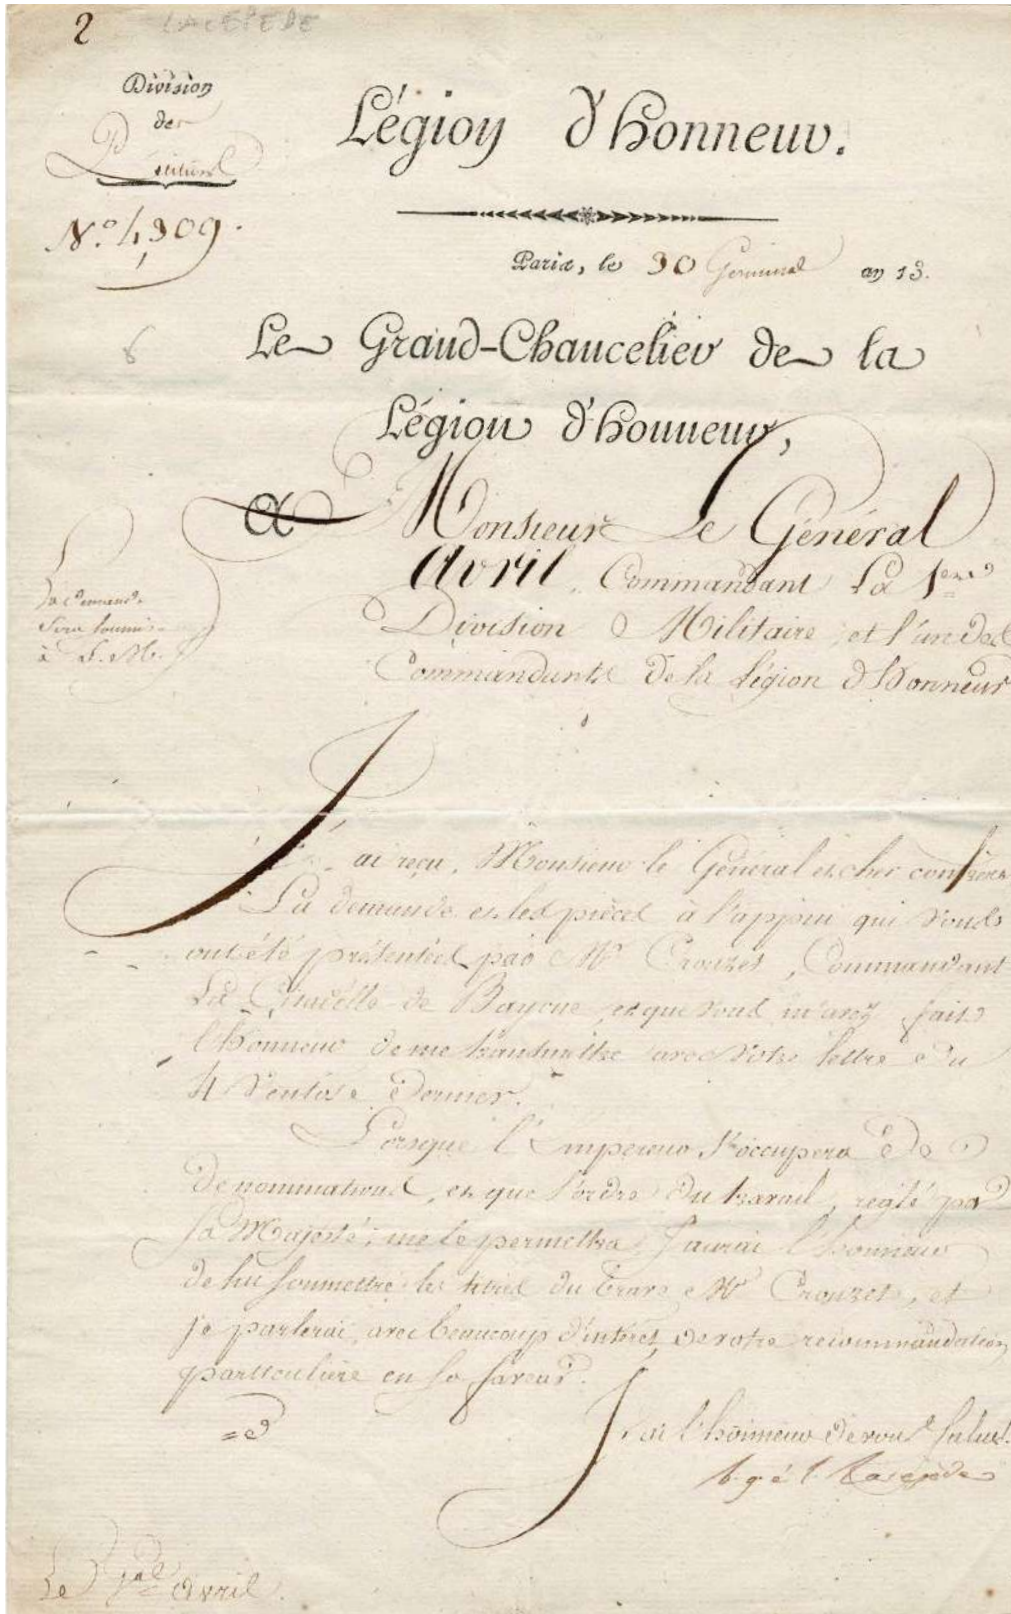 2 LACEPEDE
Division
des
Pétitions
N.º 4,309.
Légion d'Honneur.
Paris, le 30 Germinal an 13.
Le Grand-Chancelier de la
Légion d'honneur,
A Monsieur Le Général
Avril, Commandant La 1ere
Division Militaire, et l'un des
Commandants de la Légion d'Honneur
La demande
sera soumise
à S. M.
J'ai reçu, Monsieur le Général et cher confrère
La demande et les pièces à l'appui qui vous
ont été présentées par Mr Crouzet, Commandant
La Citadelle de Bayone et que vous m'avez fait
l'honneur de me transmettre avec votre lettre du
4 Ventose dernier.
Lorsque l'Empereur s'occupera de
de nominations, et que l'ordre du travail, réglé par
Sa Majesté, me le permettra, J'aurai l'honneur
de lui soumettre les titres du brave Mr Crouzet, et
je parlerai avec beaucoup d'intérêt de votre recommandation
particulière en sa faveur.
J'ai l'honneur de vous saluer.
b. g. é. l. Lacépède
Le Gal Avril.